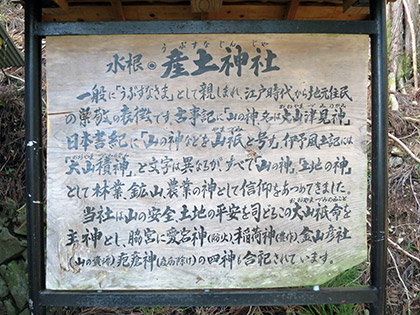 うぶすなじんじゃ
水根の産土神社
一般に「うぶすなさま」として親しまれ、江戸時代から地元住民
の崇敬の表徴です。古事記に「山の神、名は大山津見神」
日本書紀に「山の神などを山祇と号す」伊予風土記には
大山積神」と文字は異なるが、すべて「山の神」「土地の神」
として林業、鉱山、農業の神として信仰をあつめてきました
おおやまづみのみこと
当社は山の安全、土地の平安を司どるこの大山祇命を
主神とし、脇宮に愛宕神(防火)稲荷神(農作)金山彦社
(山の資源)疱瘡神(疫病除け)の四神も合祀されています。